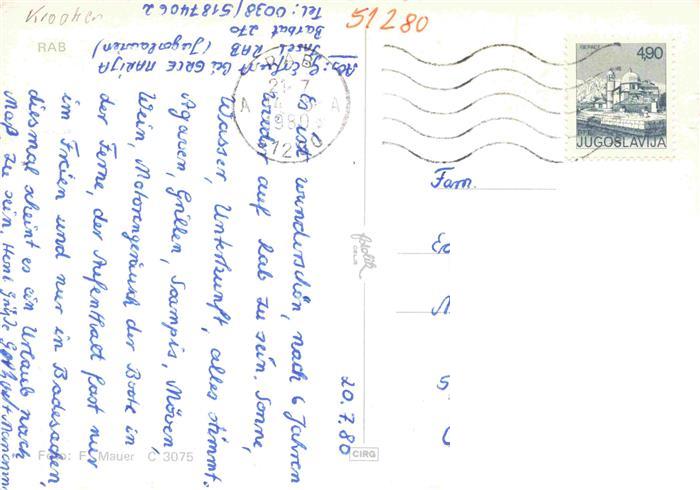 Kroatien
RAB
51280
Abs: G. Erfurt bei GRCE MARIJA
Insel RAB (Jugoslawien)
Barbat 270
Tel: 0038/5187406 2
RAB
21.7.
1980
A A
51280
БЕРАСТ
4,90
PTT
JUGOSLAVIJA
Es ist wunderschön, nach 6 Jahren
wieder auf Rab zu sein. Sonne,
Wasser, Unterkunft, alles stimmt.
Agaven, Grillen, Scampis, Möven,
Wein, Motorengeräusch der Boote in
der Ferne, der Aufenthalt fast nur
im Freien und nur in Badesachen,
diesmal scheint es ein Urlaub nach
Maß zu sein. Herzl. Grüße
20.7.80
Fam.
fotolik
CELJE
Foto: F. Mauer C 3075
CIRG